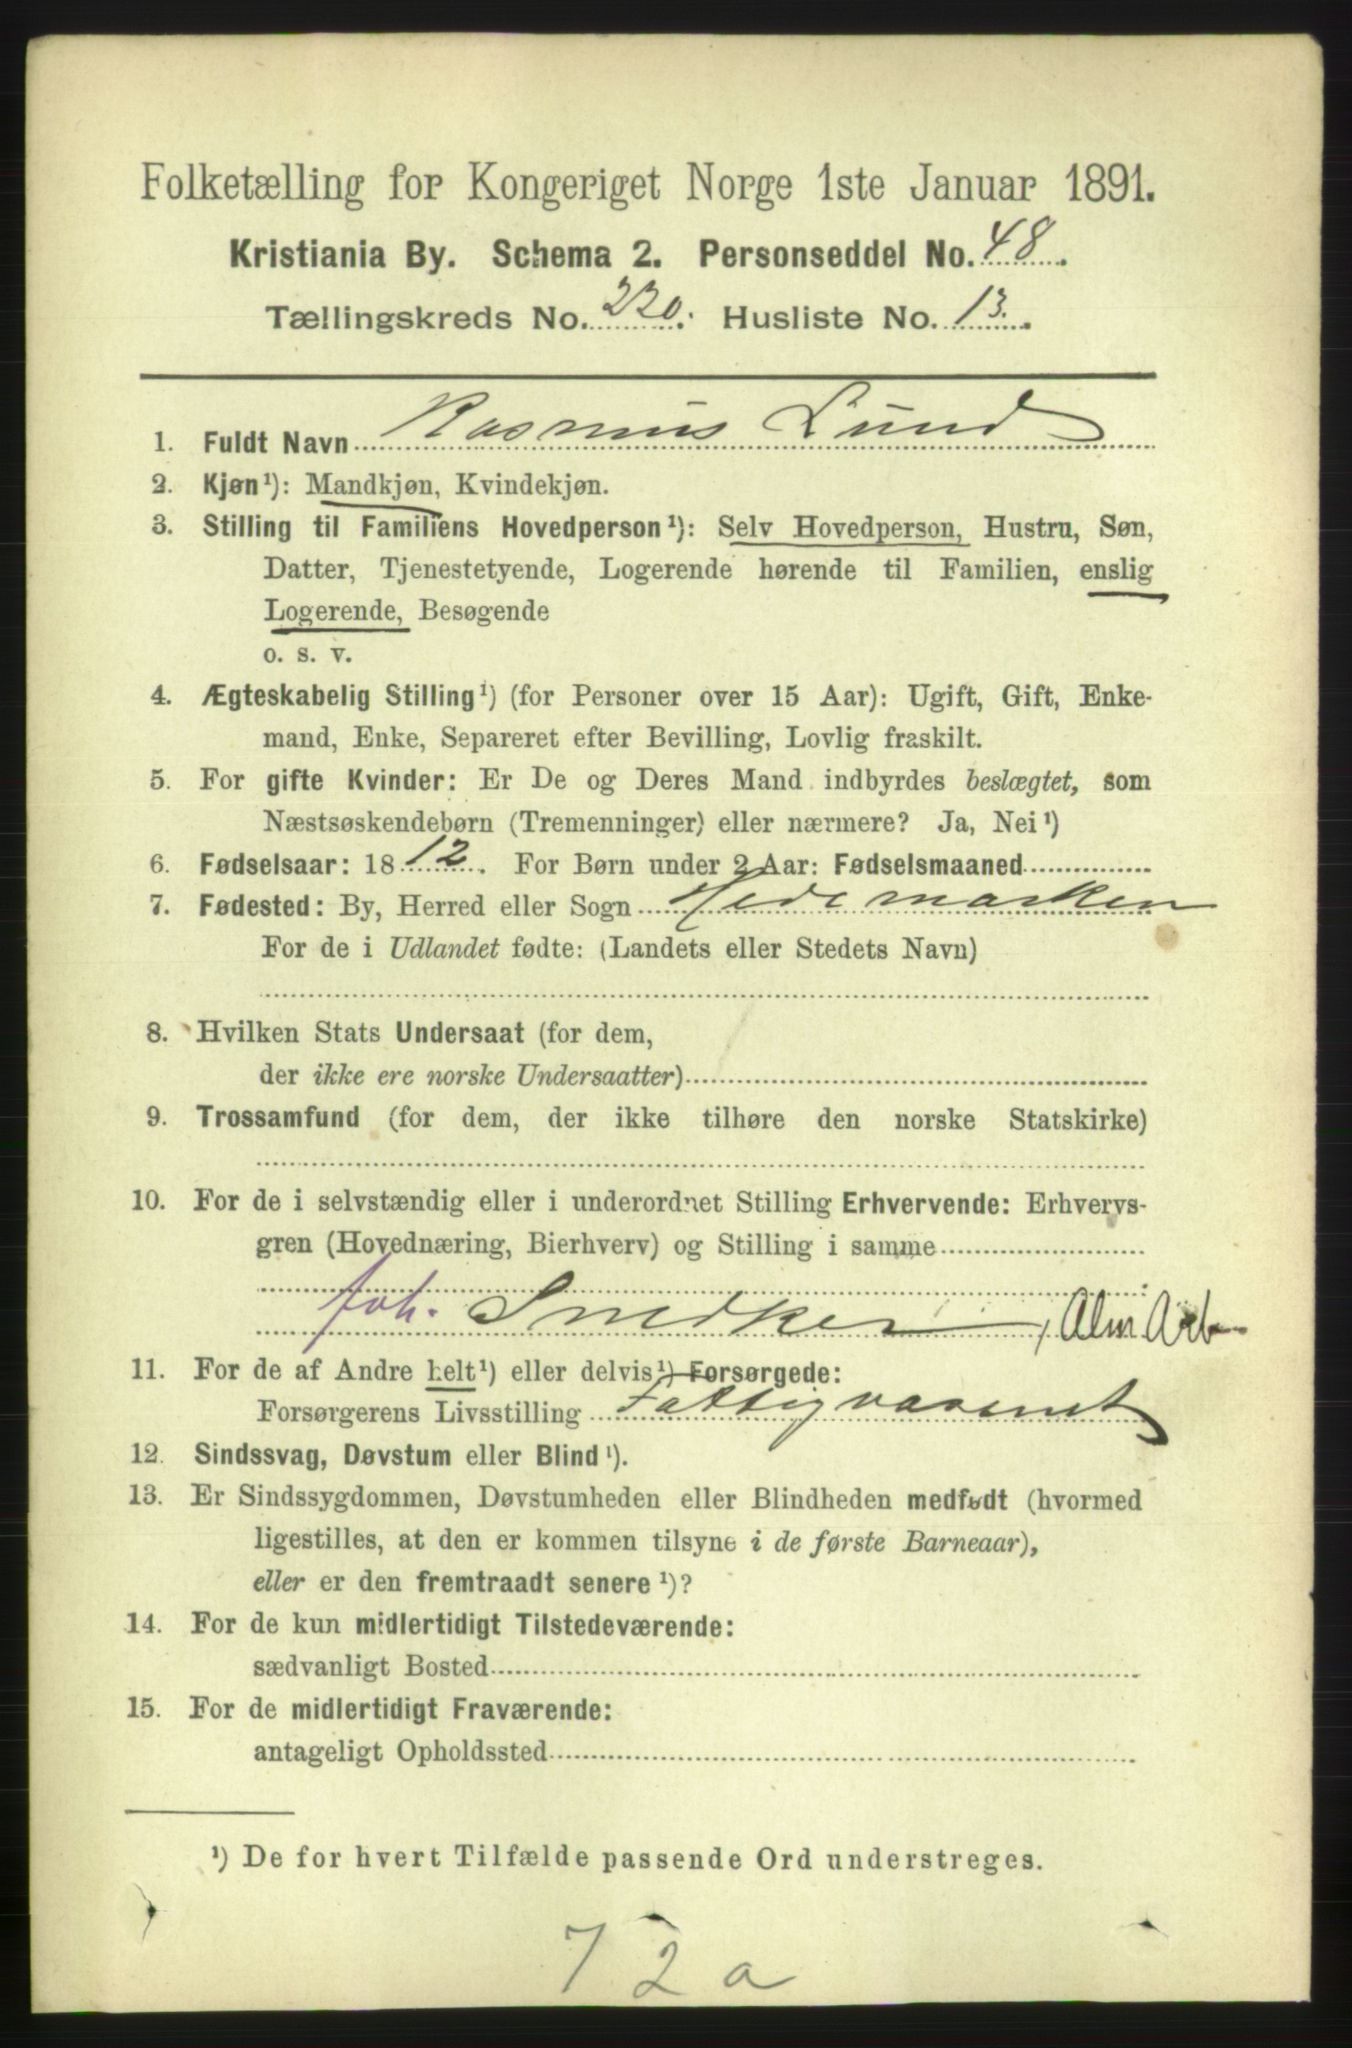 Folketælling for Kongeriget Norge 1ste Januar 1891.
Kristiania By. Schema 2. Personseddel No. 48.
Tællingskreds No. 220. Husliste No. 13.
1. Fuldt Navn Rasmus Lund
2. Kjøn¹): Mandkjøn, Kvindekjøn.
3. Stilling til Familiens Hovedperson¹): Selv Hovedperson, Hustru, Søn,
Datter, Tjenestetyende, Logerende hørende til Familien, enslig
Logerende, Besøgende
o. s. v.
4. Ægteskabelig Stilling¹) (for Personer over 15 Aar): Ugift, Gift, Enke-
mand, Enke, Separeret efter Bevilling, Lovlig fraskilt.
5. For gifte Kvinder: Er De og Deres Mand indbyrdes beslægtet, som
Næstsøskendebørn (Tremenninger) eller nærmere? Ja, Nei¹)
6. Fødselsaar: 1812. For Børn under 2 Aar: Fødselsmaaned
7. Fødested: By, Herred eller Sogn Hedemarken
For de i Udlandet fødte: (Landets eller Stedets Navn)
8. Hvilken Stats Undersaat (for dem,
der ikke ere norske Undersaatter)
9. Trossamfund (for dem, der ikke tilhøre den norske Statskirke)
10. For de i selvstændig eller i underordnet Stilling Erhvervende: Erhvervs-
gren (Hovednæring, Bierhverv) og Stilling i samme
foh. Snedker, Alm Arb
11. For de af Andre helt¹) eller delvis¹) Forsørgede:
Forsørgerens Livsstilling Fattigvæsenet
12. Sindssvag, Døvstum eller Blind¹).
13. Er Sindssygdommen, Døvstumheden eller Blindheden medfødt (hvormed
ligestilles, at den er kommen tilsyne i de første Barneaar),
eller er den fremtraadt senere¹)?
14. For de kun midlertidigt Tilstedeværende:
sædvanligt Bosted
15. For de midlertidigt Fraværende:
antageligt Opholdssted
¹) De for hvert Tilfælde passende Ord understreges.
72a